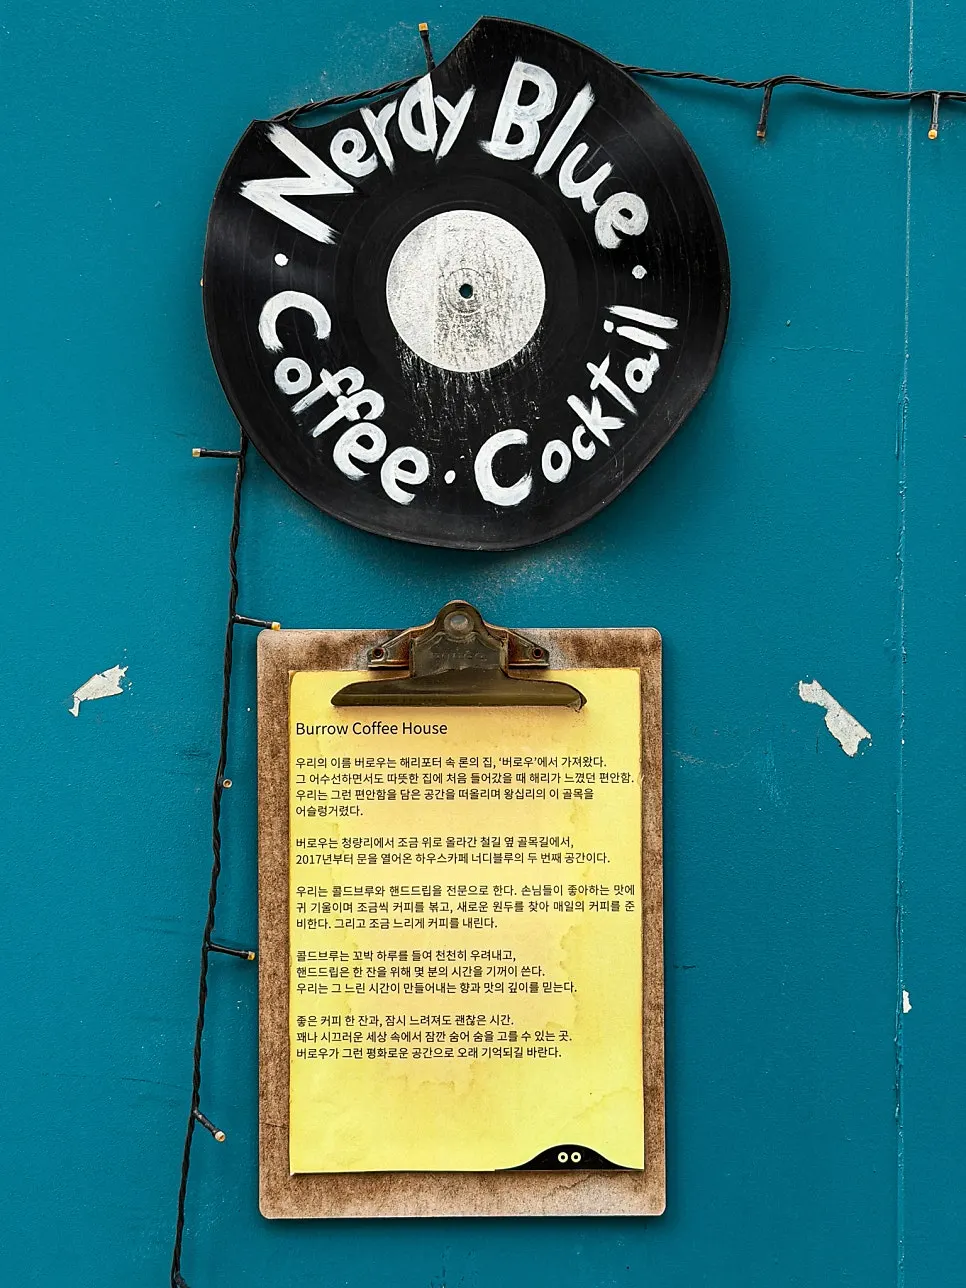 Nerdy Blue
· Coffee · Cocktail ·
Burrow Coffee House
우리의 이름 버로우는 해리포터 속 론의 집, ‘버로우’에서 가져왔다.
그 어수선하면서도 따뜻한 집에 처음 들어갔을 때 해리가 느꼈던 편안함.
우리는 그런 편안함을 담은 공간을 떠올리며 왕십리의 이 골목을
어슬렁거렸다.
버로우는 청량리에서 조금 위로 올라간 철길 옆 골목길에서,
2017년부터 문을 열어온 하우스카페 너디블루의 두 번째 공간이다.
우리는 콜드브루와 핸드드립을 전문으로 한다. 손님들이 좋아하는 맛에
귀 기울이며 조금씩 커피를 볶고, 새로운 원두를 찾아 매일의 커피를 준
비한다. 그리고 조금 느리게 커피를 내린다.
콜드브루는 꼬박 하루를 들여 천천히 우려내고,
핸드드립은 한 잔을 위해 몇 분의 시간을 기꺼이 쓴다.
우리는 그 느린 시간이 만들어내는 향과 맛의 깊이를 믿는다.
좋은 커피 한 잔과, 잠시 느려져도 괜찮은 시간.
꽤나 시끄러운 세상 속에서 잠깐 숨어 숨을 고를 수 있는 곳.
버로우가 그런 평화로운 공간으로 오래 기억되길 바란다.